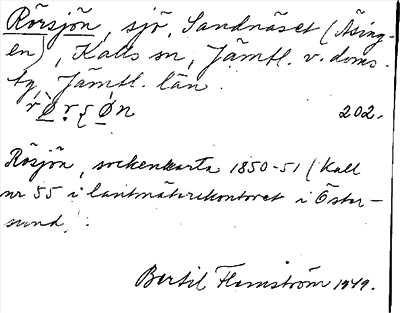 Rörsjön, sjö, Sandnäset (Åsing-
en), Kalls sn, Jämtl. v. doms.
tg, Jämtl. län.
202.
Rösjön, sockenkarta 1850-51 (Kall
nr 55 i lantmäterikontoret i Öster-
sund).
Bertil Flemström 1949.